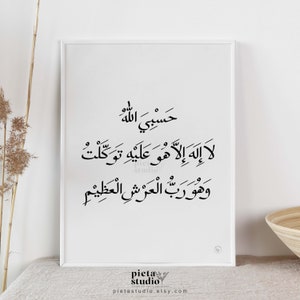 حَسْبِيَ اللهُ
لَا إِلَهَ إِلَّا هُوَ عَلَيْهِ تَوَكَّلْتُ
وَهُوَ رَبُّ الْعَرْشِ الْعَظِيْمِ
pieta
studio
pietastudio.etsy.com